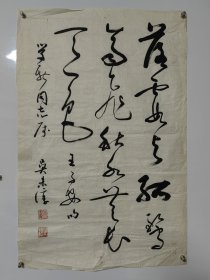 落霞与孤鹜
齐飞秋水共长
天一色 王勃句
学新同志属 吴未淳